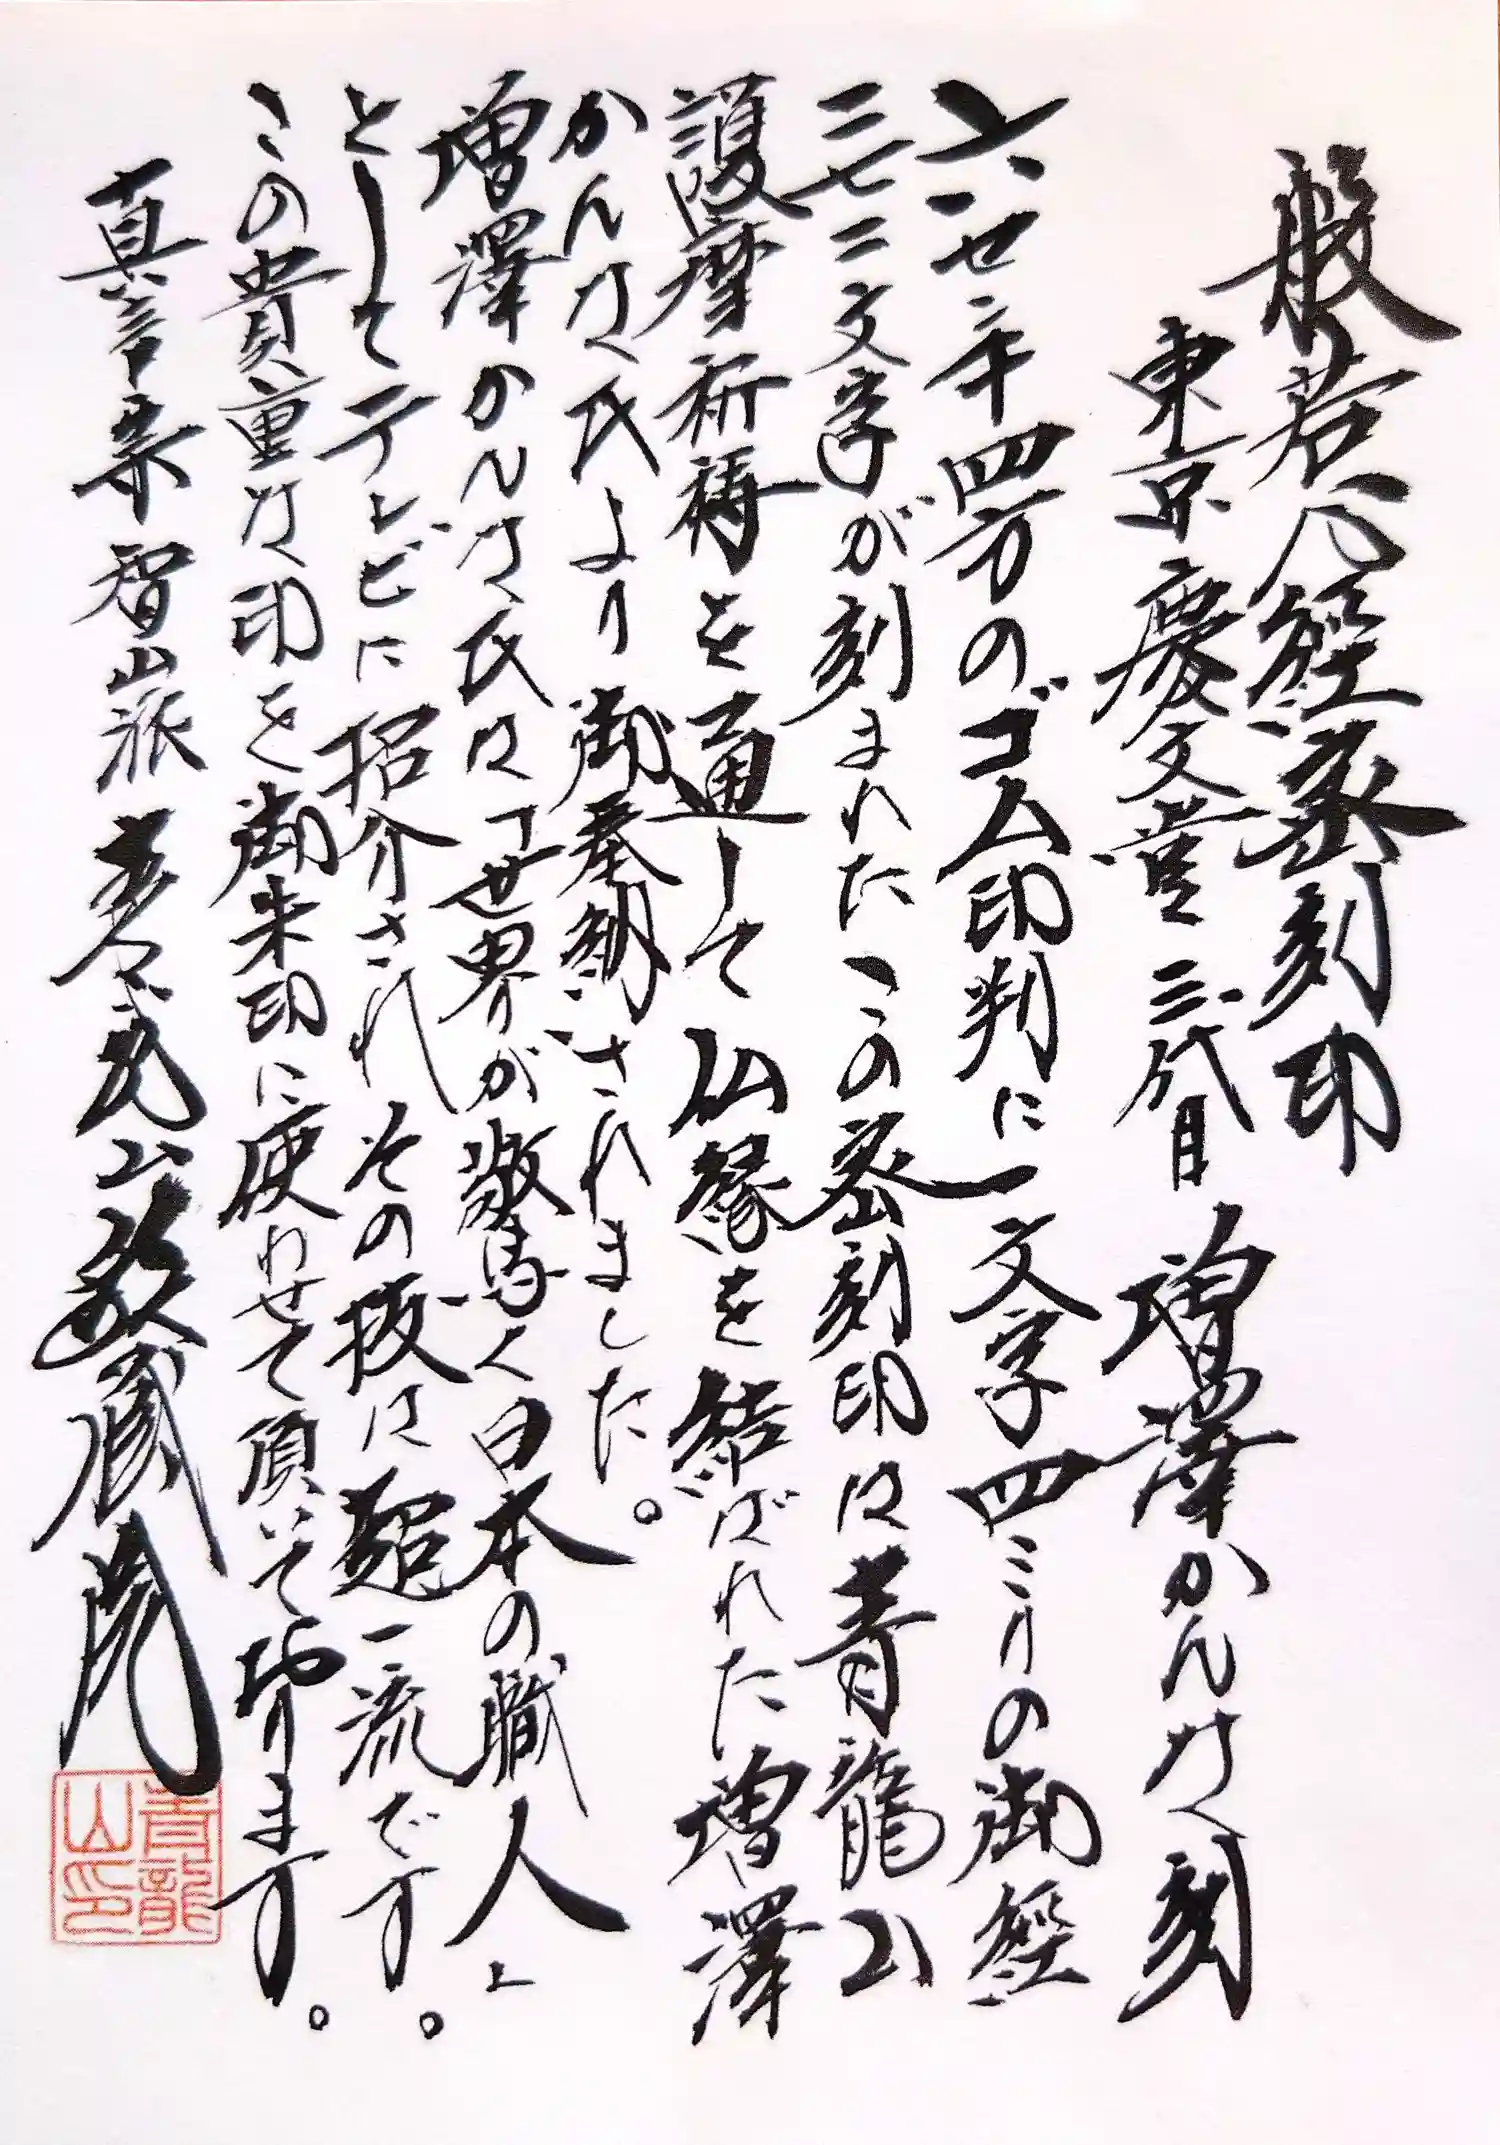 般若心經密刻印
東京 慶文堂 三代目 増澤かんな刻
六八ミリ四方のゴム印判に一文字四ミリの御經
二七二文字が刻まれたこの密刻印は青龍山
護摩祈祷を通して仏縁を結ばれた増澤
かんな氏より御奉納されました。
増澤かんな氏は「世界が驚く日本の職人」
としてテレビに招介されその技は超一流です。
この貴重な印を御朱印に使わせて頂いて居ります。
真言宗智山派 青龍山
青龍山印